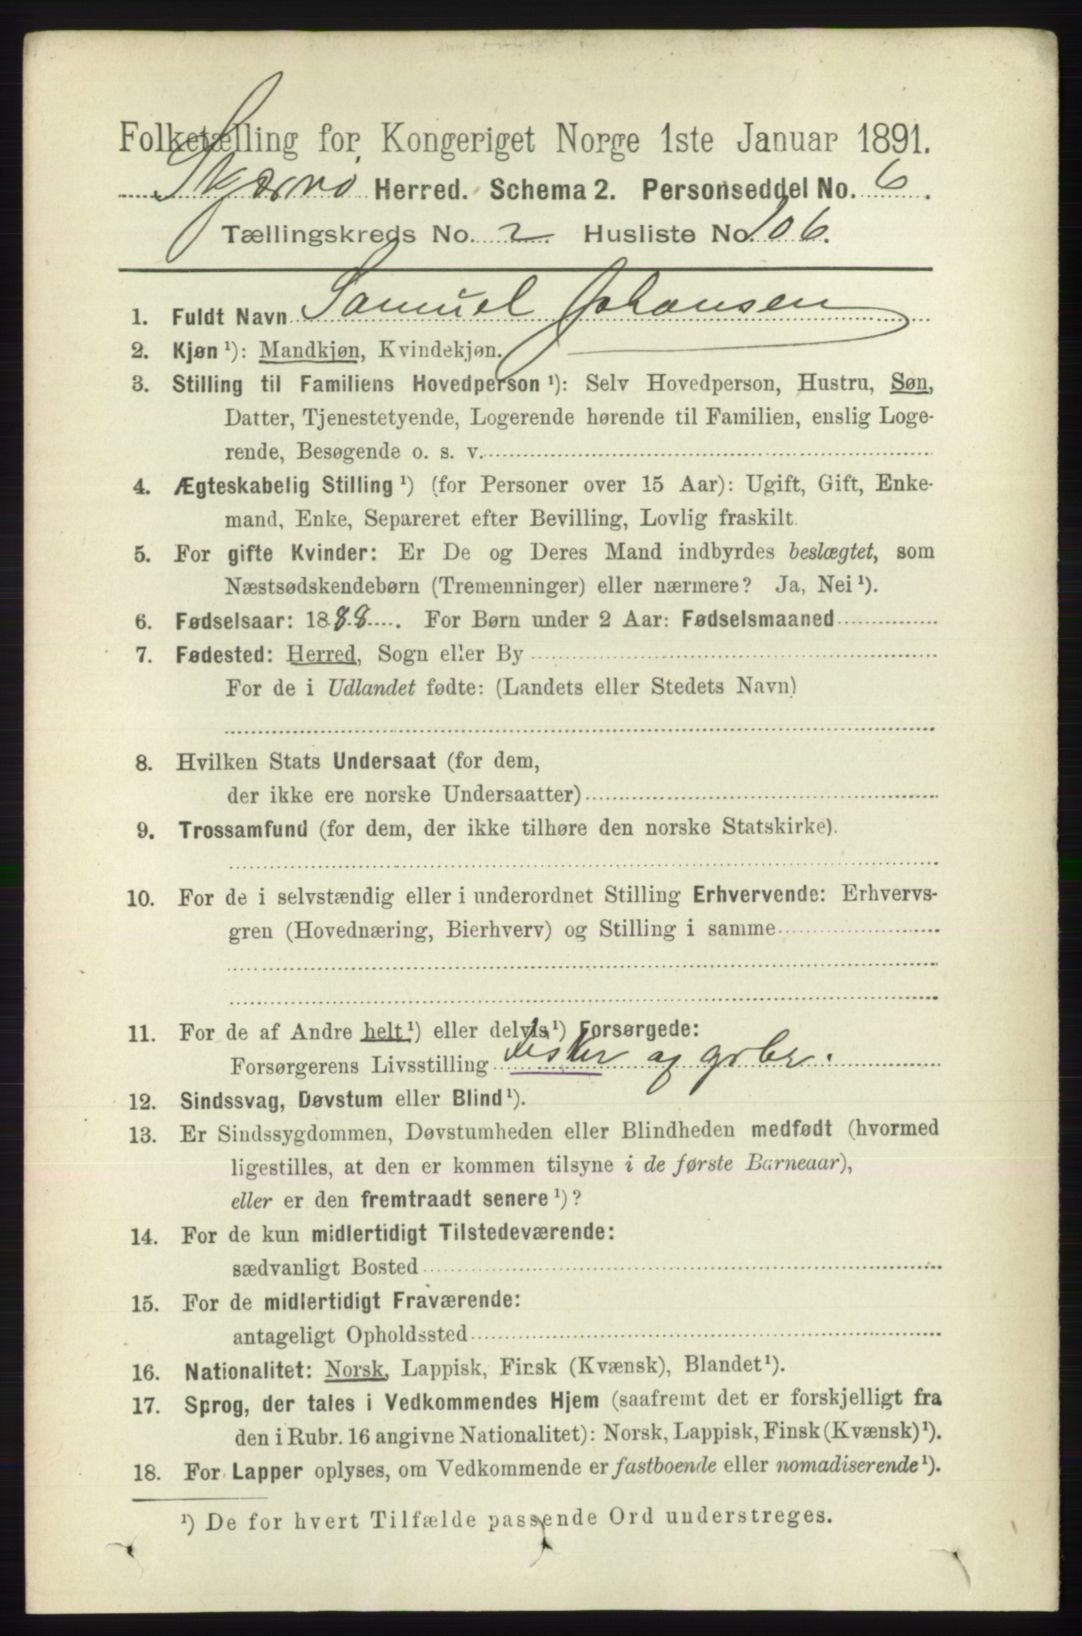 Folketælling for Kongeriget Norge 1ste Januar 1891.
Skjærvø Herred. Schema 2. Personseddel No. 6.
Tællingskreds No. 2 Husliste No. 106.
1. Fuldt Navn Samuel Johansen
2. Kjøn ¹): Mandkjøn, Kvindekjøn.
3. Stilling til Familiens Hovedperson ¹): Selv Hovedperson, Hustru, Søn,
Datter, Tjenestetyende, Logerende hørende til Familien, enslig Loge-
rende, Besøgende o. s. v.
4. Ægteskabelig Stilling ¹) (for Personer over 15 Aar): Ugift, Gift, Enke-
mand, Enke, Separeret efter Bevilling, Lovlig fraskilt.
5. For gifte Kvinder: Er De og Deres Mand indbyrdes beslægtet, som
Næstsødskendebørn (Tremenninger) eller nærmere? Ja, Nei ¹).
6. Fødselsaar: 1888. For Børn under 2 Aar: Fødselsmaaned
7. Fødested: Herred, Sogn eller By
For de i Udlandet fødte: (Landets eller Stedets Navn)
8. Hvilken Stats Undersaat (for dem,
der ikke ere norske Undersaatter)
9. Trossamfund (for dem, der ikke tilhøre den norske Statskirke).
10. For de i selvstændig eller i underordnet Stilling Erhvervende: Erhvervs-
gren (Hovednæring, Bierhverv) og Stilling i samme
11. For de af Andre helt ¹) eller delvis ¹) Forsørgede:
Forsørgerens Livsstilling fisker og grbr.
12. Sindssvag, Døvstum eller Blind ¹).
13. Er Sindssygdommen, Døvstumheden eller Blindheden medfødt (hvormed
ligestilles, at den er kommen tilsyne i de første Barneaar),
eller er den fremtraadt senere ¹)?
14. For de kun midlertidigt Tilstedeværende:
sædvanligt Bosted
15. For de midlertidigt Fraværende:
antageligt Opholdssted
16. Nationalitet: Norsk, Lappisk, Finsk (Kvænsk), Blandet ¹).
17. Sprog, der tales i Vedkommendes Hjem (saafremt det er forskjelligt fra
den i Rubr. 16 angivne Nationalitet): Norsk, Lappisk, Finsk (Kvænsk) ¹).
18. For Lapper oplyses, om Vedkommende er fastboende eller nomadiserende ¹).
¹) De for hvert Tilfælde passende Ord understreges.